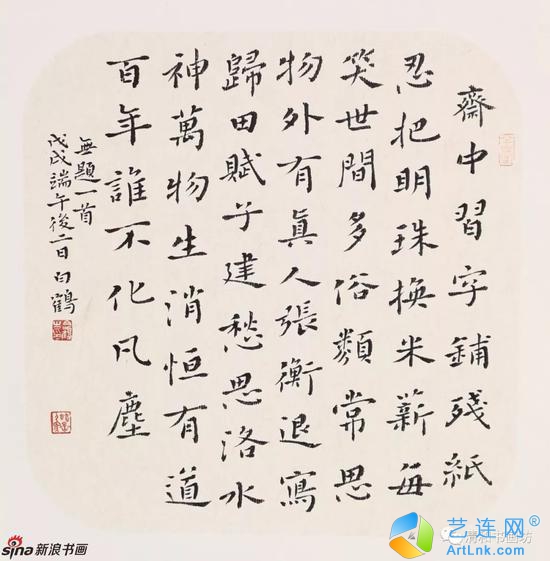 齋中習字鋪殘紙
忍把明珠換米薪每
笑世間多俗類常思
物外有真人張衡退寫
歸田賦子建愁思洛水
神萬物生消恒有道
百年誰不化凡塵
無題一首
戊戌端午後二日白鶴
sina新浪书画
清和书画坊
艺连网
ArtLnk.com